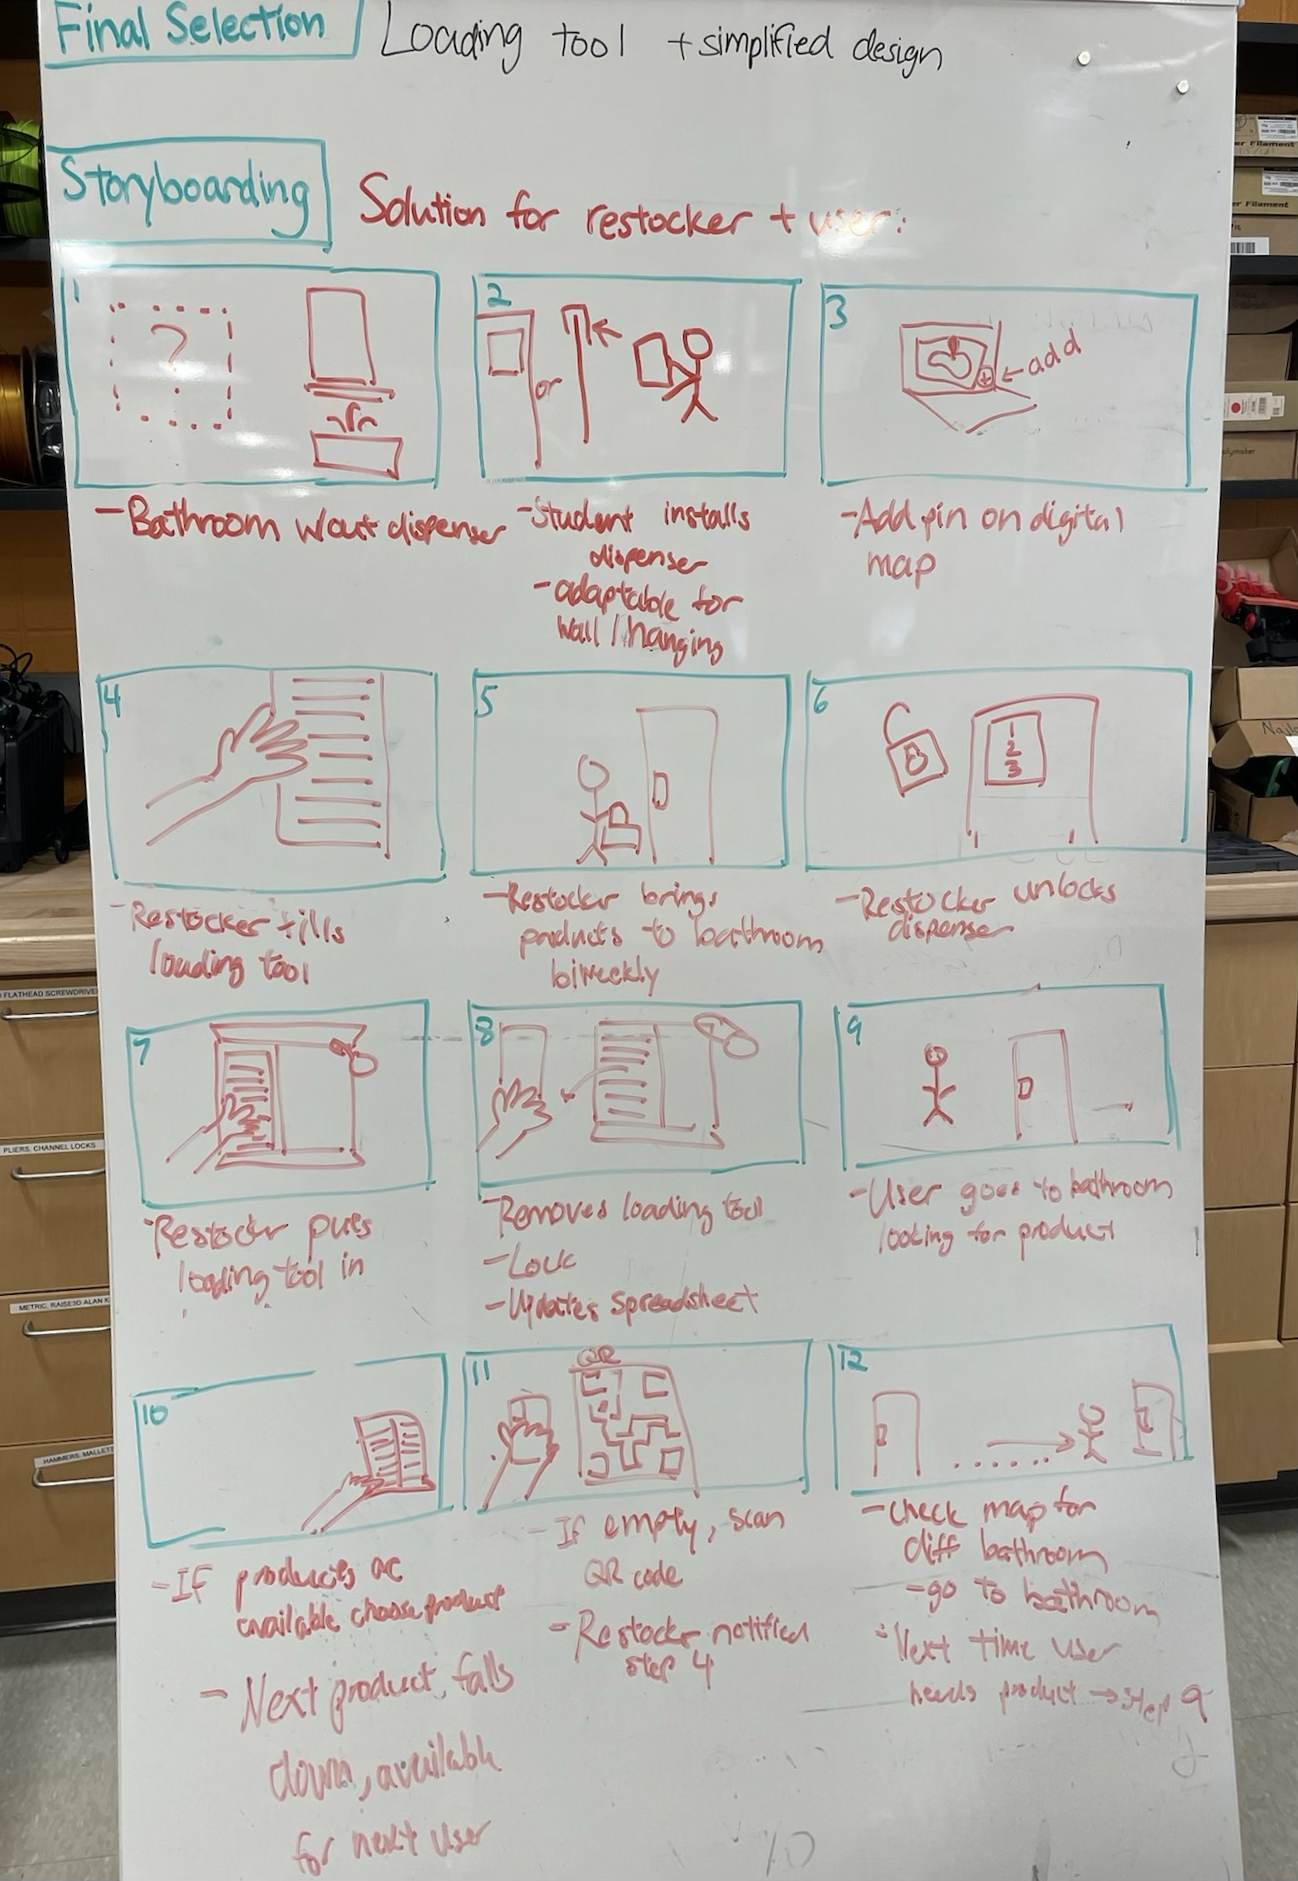 Final Selection
Loading tool + simplified design
Storyboarding
Solution for restocker + user:
1
?
- Bathroom w/out dispenser
2
or
- Student installs
dispenser
- adaptable for
wall / hanging
3
+
← add
- Add pin on digital
map
4
- Restocker fills
loading tool
5
- Restocker brings
products to bathroom
biweekly
6
1
2
3
- Restocker unlocks
dispenser
7
- Restockr puts
loading tool in
8
- Removes loading tool
- Lock
- Updates spreadsheet
9
- User goes to bathroom
looking for product
10
- If products are
available choose product
- Next product falls
down, available
for next user
11
QR
- If empty, scan
QR code
- Restocker notified
step 4
12
- check map for
diff bathroom
- go to bathroom
- Next time user
needs product → step 9
er Filament
Filament
FLATHEAD SCREWDRIVE
PLIERS, CHANNEL LOCKS
METRIC, RAISE3D ALAN K
HAMMERS, MALLETS